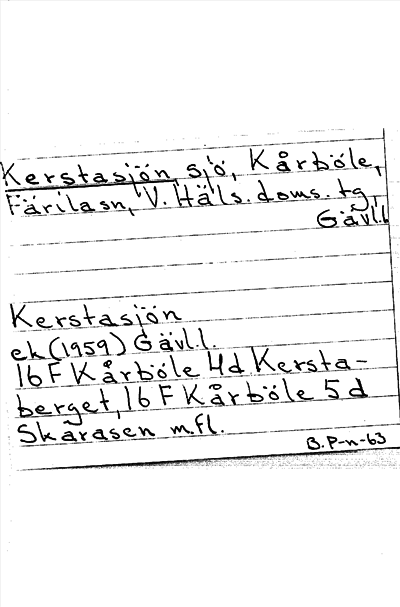 Kerstasjön, sjö, Kårböle,
Färila sn, V. Häls. doms. tg,
Gävl.l
Kerstasjön
ek (1959) Gävl.l.
16 F Kårböle 4d Kersta-
berget, 16 F Kårböle 5 d
Skårasen m.fl.
B. P-n-63